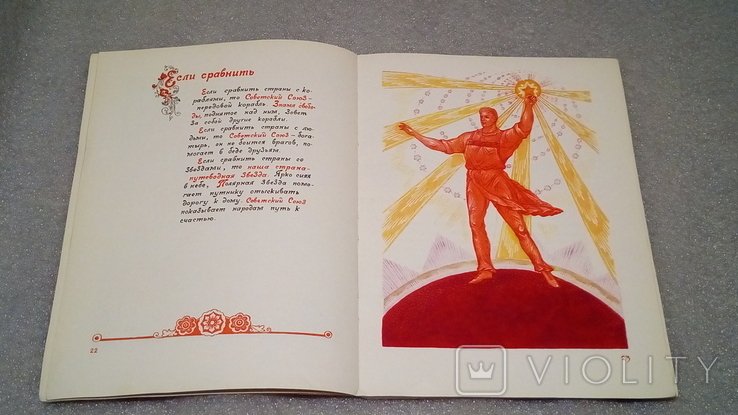 Если сравнить
Если сравнить страны с ко-
раблями, то Советский Союз-
передовой корабль. Знамя свобо-
ды, поднятое над ним, зовет
за собой другие корабли.
Если сравнить страны с лю-
дьми, то Советский Союз-бога-
тырь, он не боится врагов, по-
могает в беде друзьям.
Если сравнить страны со
звездами, то наша страна-
путеводная звезда. Ярко сияя
в небе, Полярная звезда помо-
гает путнику отыскивать
дорогу к дому. Советский Союз
показывает народам путь к
счастью.
22
VIOLITY